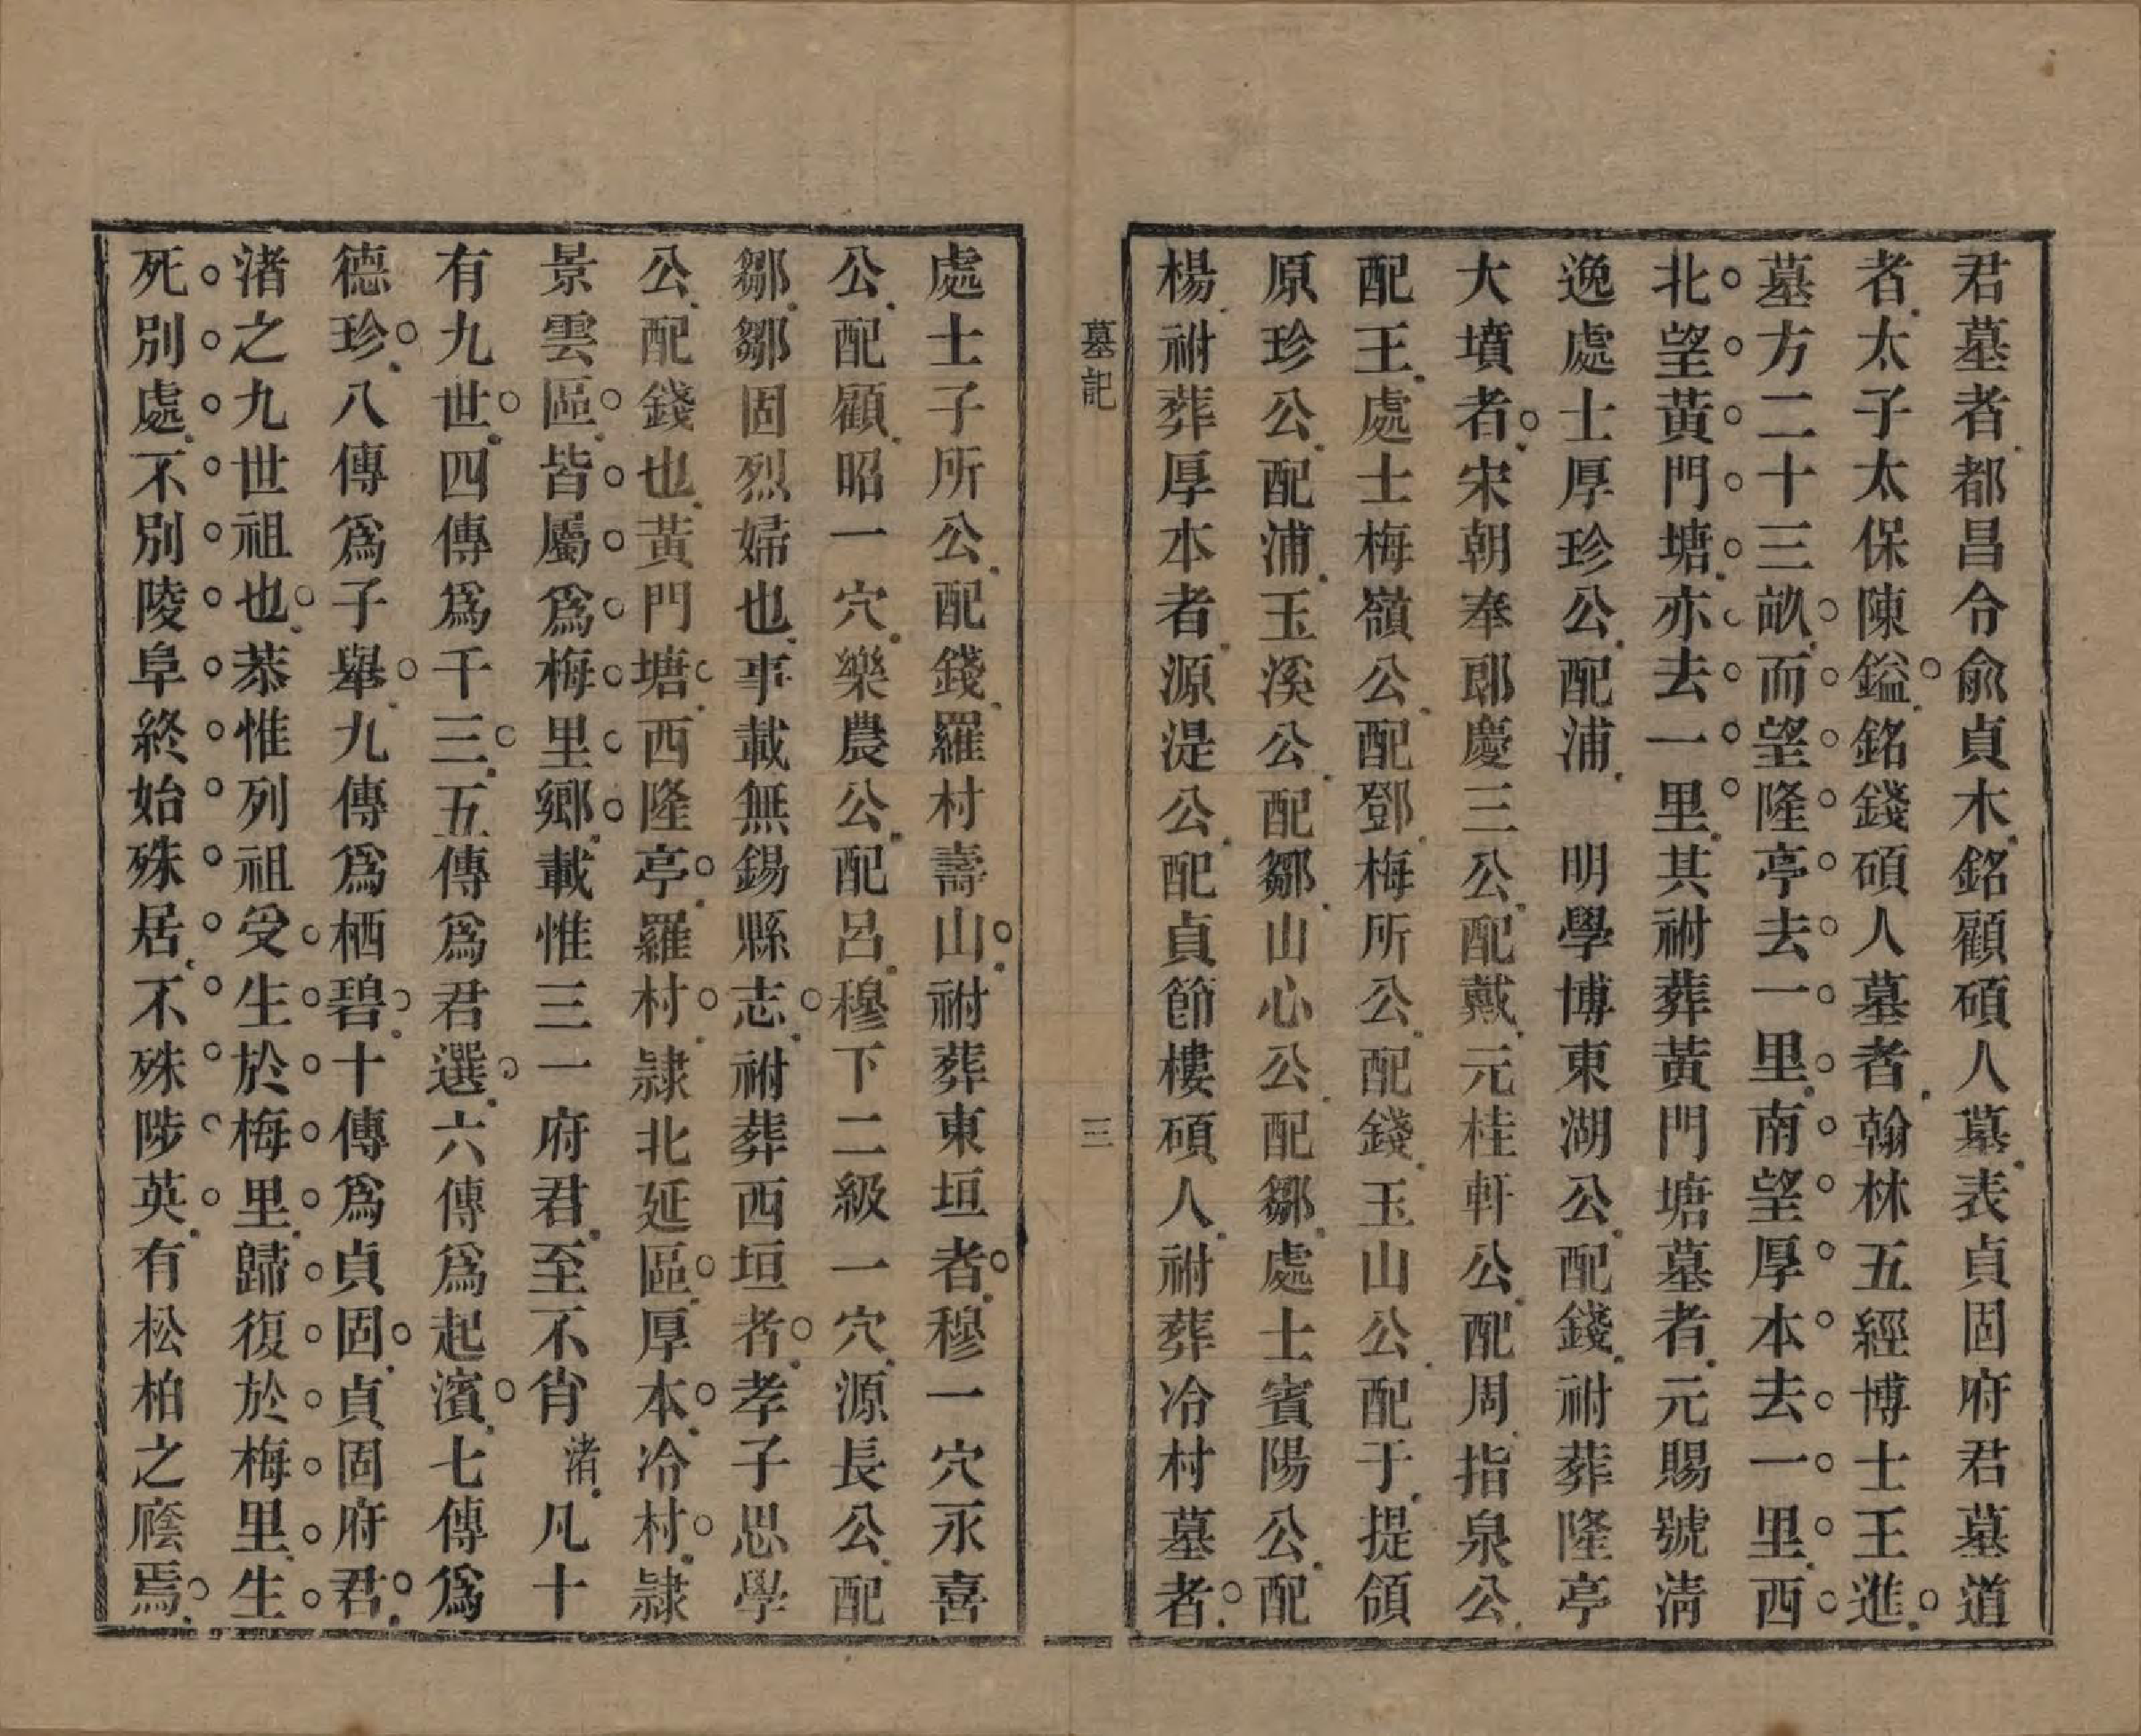 君墓者都昌令兪貞木銘顧碩人墓表貞固府君墓道
者太子太保陳鎰銘錢碩人墓者翰林五經博士王進
墓方二十三畝而望隆亭去一里南望厚本去一里西
北望黃門塘亦去一里其祔葬黃門塘墓者元賜號清
逸處士厚珍公配浦　明學博東湖公配錢祔葬隆亭
大墳者宋朝奉郎慶三公配戴元桂軒公配周指泉公
配王處士梅嶺公配鄧梅所公配錢玉山公配于提領
原珍公配浦玉溪公配鄒山心公配鄒處士賓陽公配
楊祔葬厚本者源湜公配貞節樓碩人祔葬冷村墓者
墓記　三
處士子所公配錢羅村壽山祔葬東垣者穆一穴永喜
公配顧昭一穴樂農公配呂穆下二級一穴源長公配
鄒鄒固烈婦也事載無錫縣志祔葬西垣者孝子思學
公配錢也黃門塘西隆亭羅村隸北延區厚本冷村隸
景雲區皆屬爲梅里鄉載惟三一府君至不肖渚凡十
有九世四傳爲千三五傳爲君選六傳爲起濱七傳爲
德珍八傳爲子舉九傳爲栖碧十傳爲貞固貞固府君
渚之九世祖也恭惟列祖受生於梅里歸復於梅里生
死別處不別陵阜終始殊居不殊陟英有松柏之廕焉